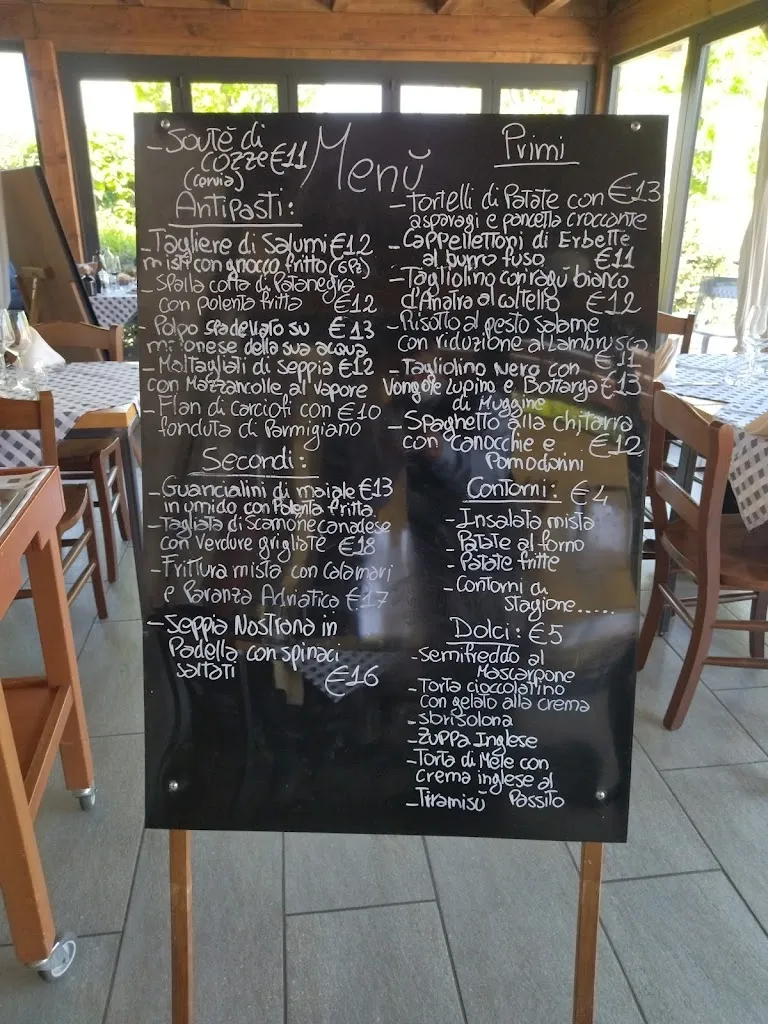 Menŭ
- Soutè di
cozze €11
(cervia)
Antipasti:
- Tagliere di Salumi €12
misti con gnocco fritto (6Pz)
- Spalla cotta di Patanegra
con polenta fritta €12
- Polpo spadellato su €13
maionese della sua acqua
- Maltagliati di seppia €12
con Mazzancolle al vapore
- Flan di carciofi con €10
fonduta di Parmigiano
Secondi:
- Guancialini di maiale €13
in umido con Polenta fritta
- Tagliata di Scamone canadese
con Verdure grigliate €18
- Frittura mista con Calamari
e Paranza Adriatica €17
- Seppia Nostrana in
Padella con spinaci
saltati
€16
Primi
- Tortelli di Patate con €13
asparagi e pancetta croccante
- Cappellettoni di Erbette
al burro fuso €11
- Tagliolino con ragù bianco
d'Anatra al coltello €12
- Risotto al pesto salame
con riduzione al Lambrusco
€11
- Tagliolino Nero con
Vongole Lupino e Bottarga €13
di Muggine
- Spaghetto alla Chitarra
con canocchie e €12
Pomodorini
Contorni: €4
- Insalata mista
- Patate al forno
- Patate fritte
- Contorni di
stagione.....
Dolci: €5
- semifreddo al
Mascarpone
- Torta cioccolatino
con gelato alla crema
- sbrisolona
- Zuppa Inglese
- Torta di Mele con
crema inglese al
Passito
- Tiramisŭ